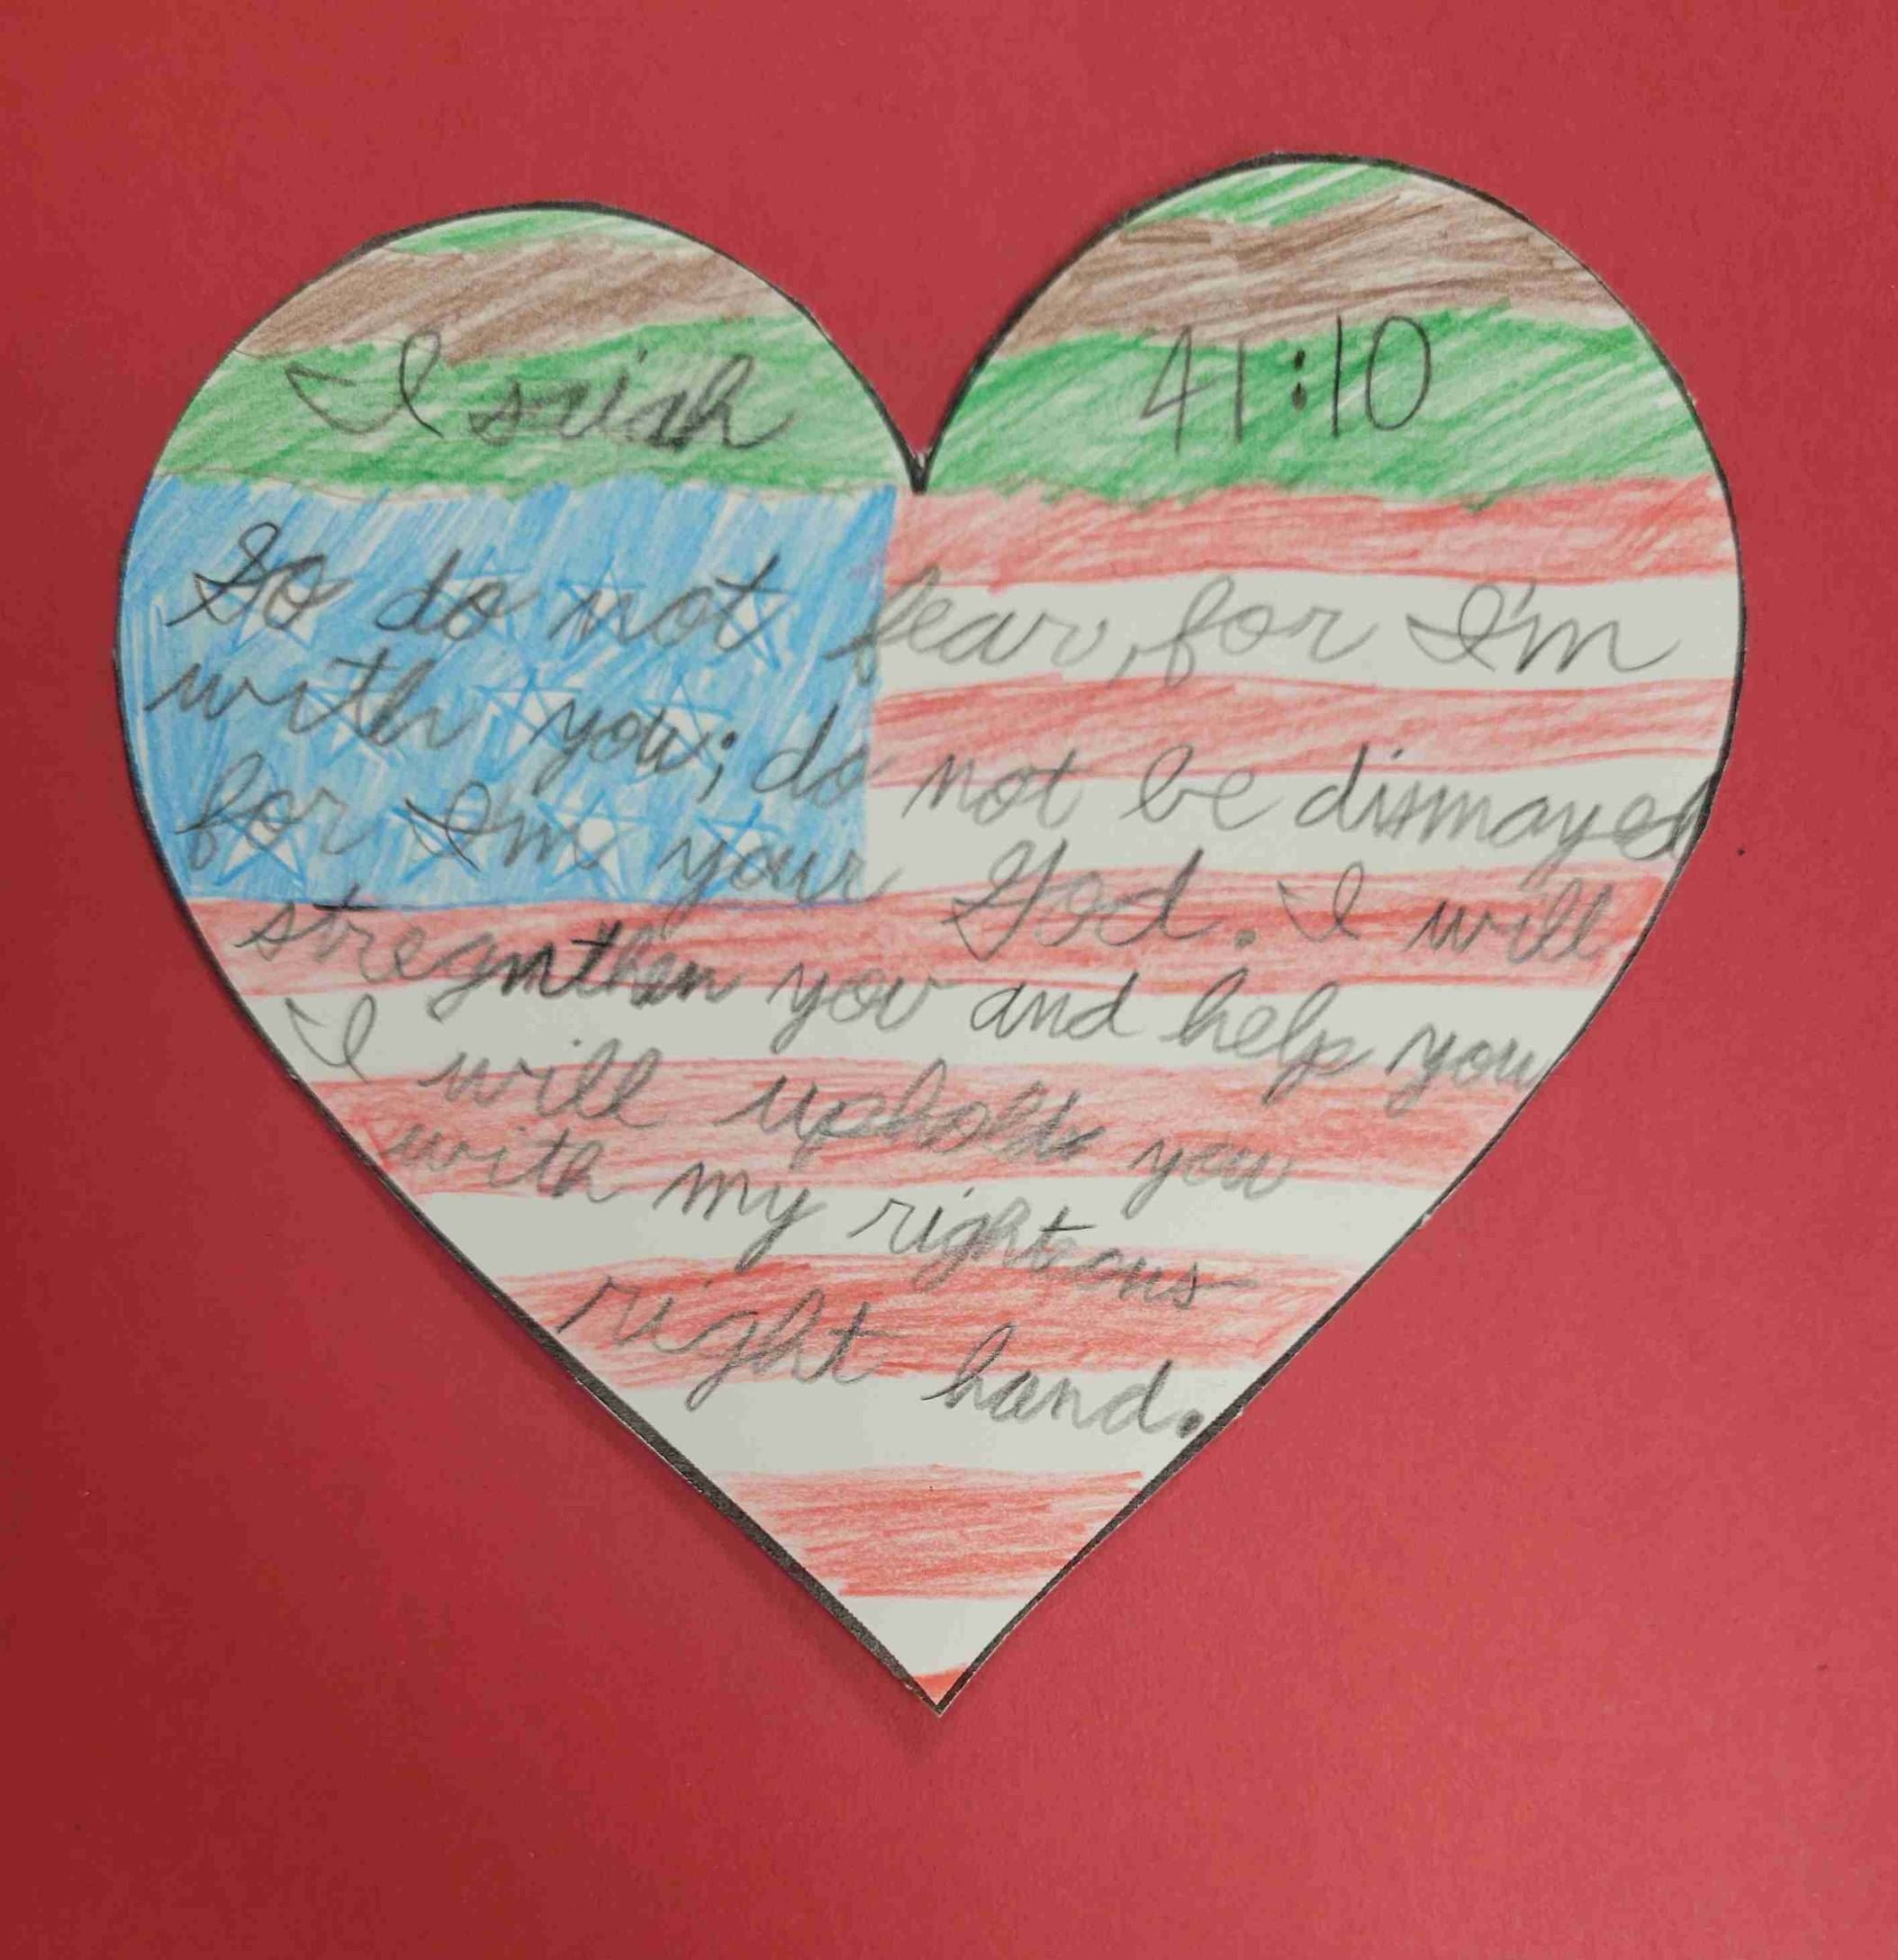 Isaiah 41:10
So do not fear, for I'm
with you; do not be dismayed
for I'm your God. I will
stregnthen you and help you
I will uphold you
with my righteous
right hand.